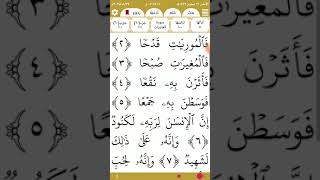 فَٱلْمُورِيَٰتِ قَدْحًا ﴿٢﴾
فَٱلْمُغِيرَٰتِ صُبْحًا ﴿٣﴾
فَأَثَرْنَ بِهِۦ نَقْعًا ﴿٤﴾
فَوَسَطْنَ بِهِۦ جَمْعًا ﴿٥﴾
إِنَّ ٱلْإِنسَٰنَ لِرَبِّهِۦ لَكَنُودٌ
﴿٦﴾ وَإِنَّهُۥ عَلَىٰ ذَٰلِكَ
لَشَهِيدٌ ﴿٧﴾ وَإِنَّهُۥ لِحُبِّ